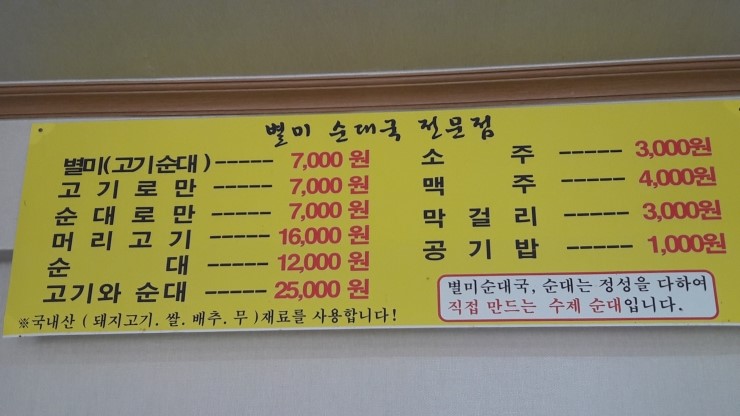 별미 순대국 전문점
별미(고기순대)----- 7,000 원
고기로만 ----- 7,000 원
순대로만 ----- 7,000 원
머리고기 ----- 16,000 원
순대 ----- 12,000 원
고기와 순대 ----- 25,000 원
※국내산 ( 돼지고기. 쌀. 배추. 무 )재료를 사용합니다!
소주 ----- 3,000원
맥주 ----- 4,000원
막걸리 ----- 3,000원
공기밥 ----- 1,000원
별미순대국, 순대는 정성을 다하여
직접 만드는 수제 순대입니다.